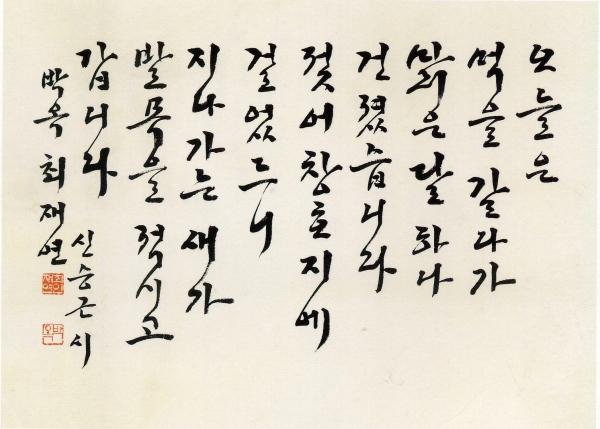 오늘은
먹을 갈다가
맑은 달 하나
건졌습니다
젖어 창호지에
걸었드니
지나가는 새가
발목을 적시고
갑니다
신승근 시
박옥 최재연